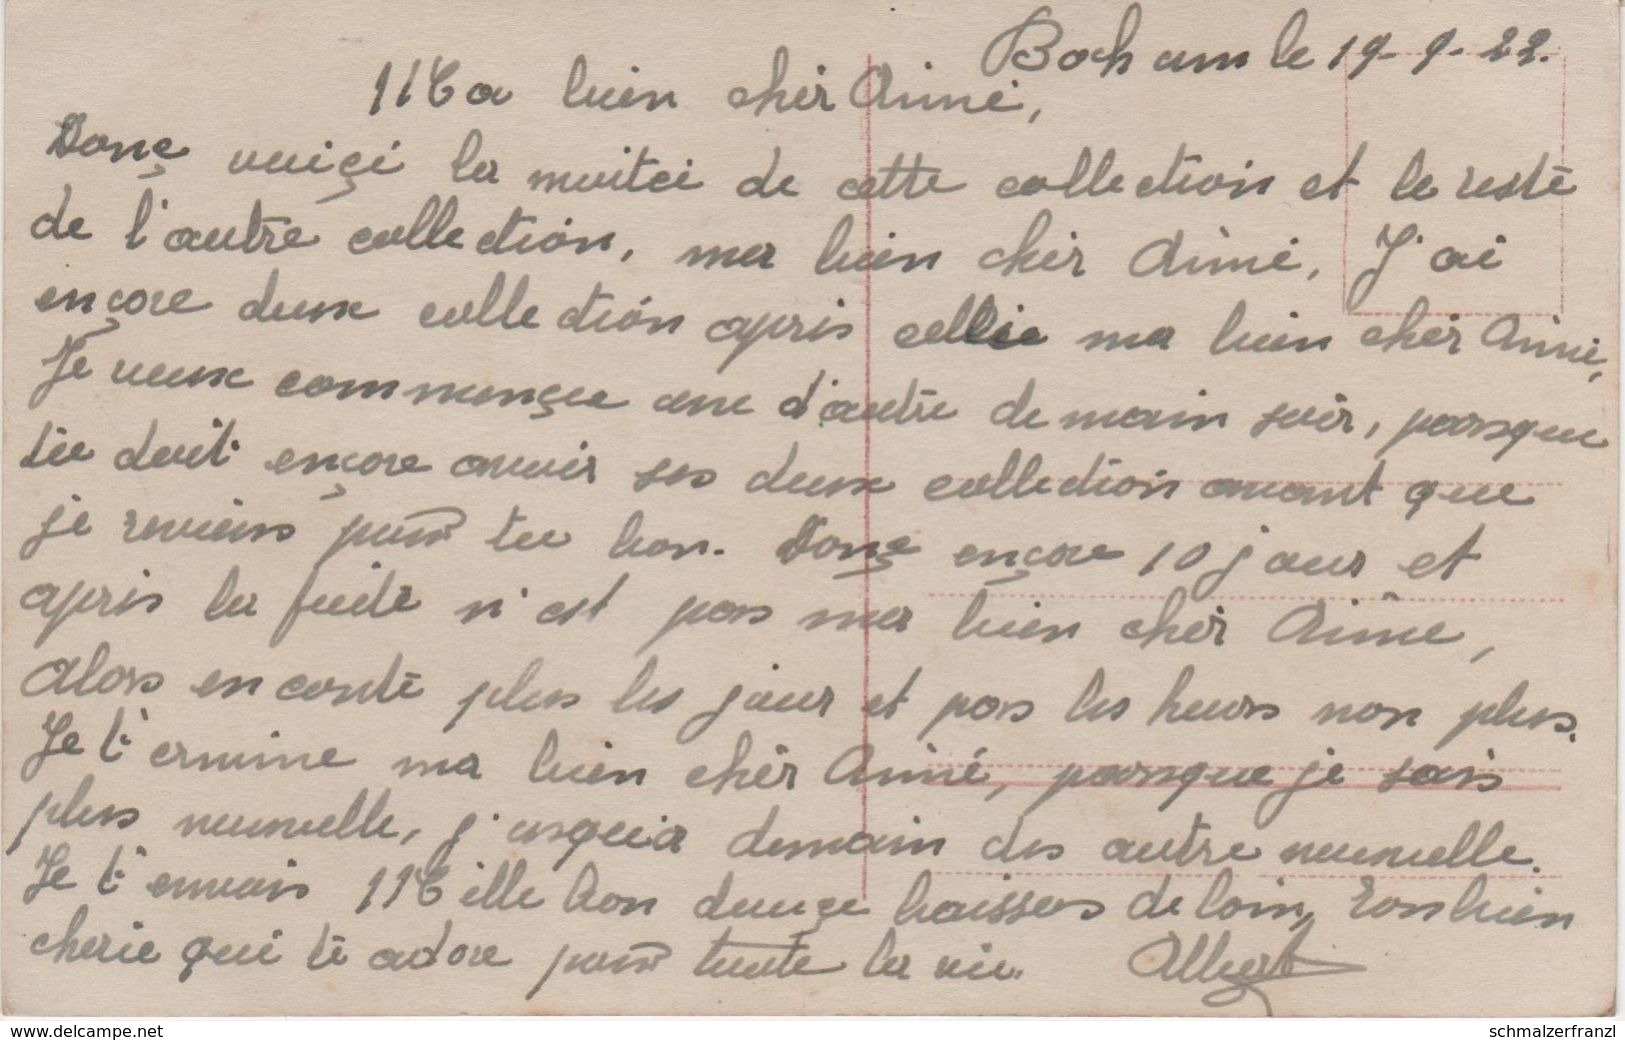 Bochum le 19-9-22.
Ma bien chèr Aimé,
Donç voiçi la moiteì de cette collection et le reste
de l'autre collection, ma bien chèr Aimé, J'ai
ençore deux collection après cellie ma bien chèr Aimé,
Je veux commençee une d'autre demain soir, parsque
tu doit ençore avoir ses deux collection avant que
je reviens pour tu bon. Donçe ençore 10 jour et
apris la fuite n'est pas ma bien chèr Aimé,
Alors en conte plus les jour et pas les heurs non plus.
Je t'ermine ma bien chèr Aimé, parsque je sais
plus nouvelle, j'usquia demain des autre nouvelle.
Je t'envois Mille bon douçe baissers de loin, Ton bien
cherie qui te adore pour toute la vie. Albert
www.delcampe.net
schmalzerfranzl